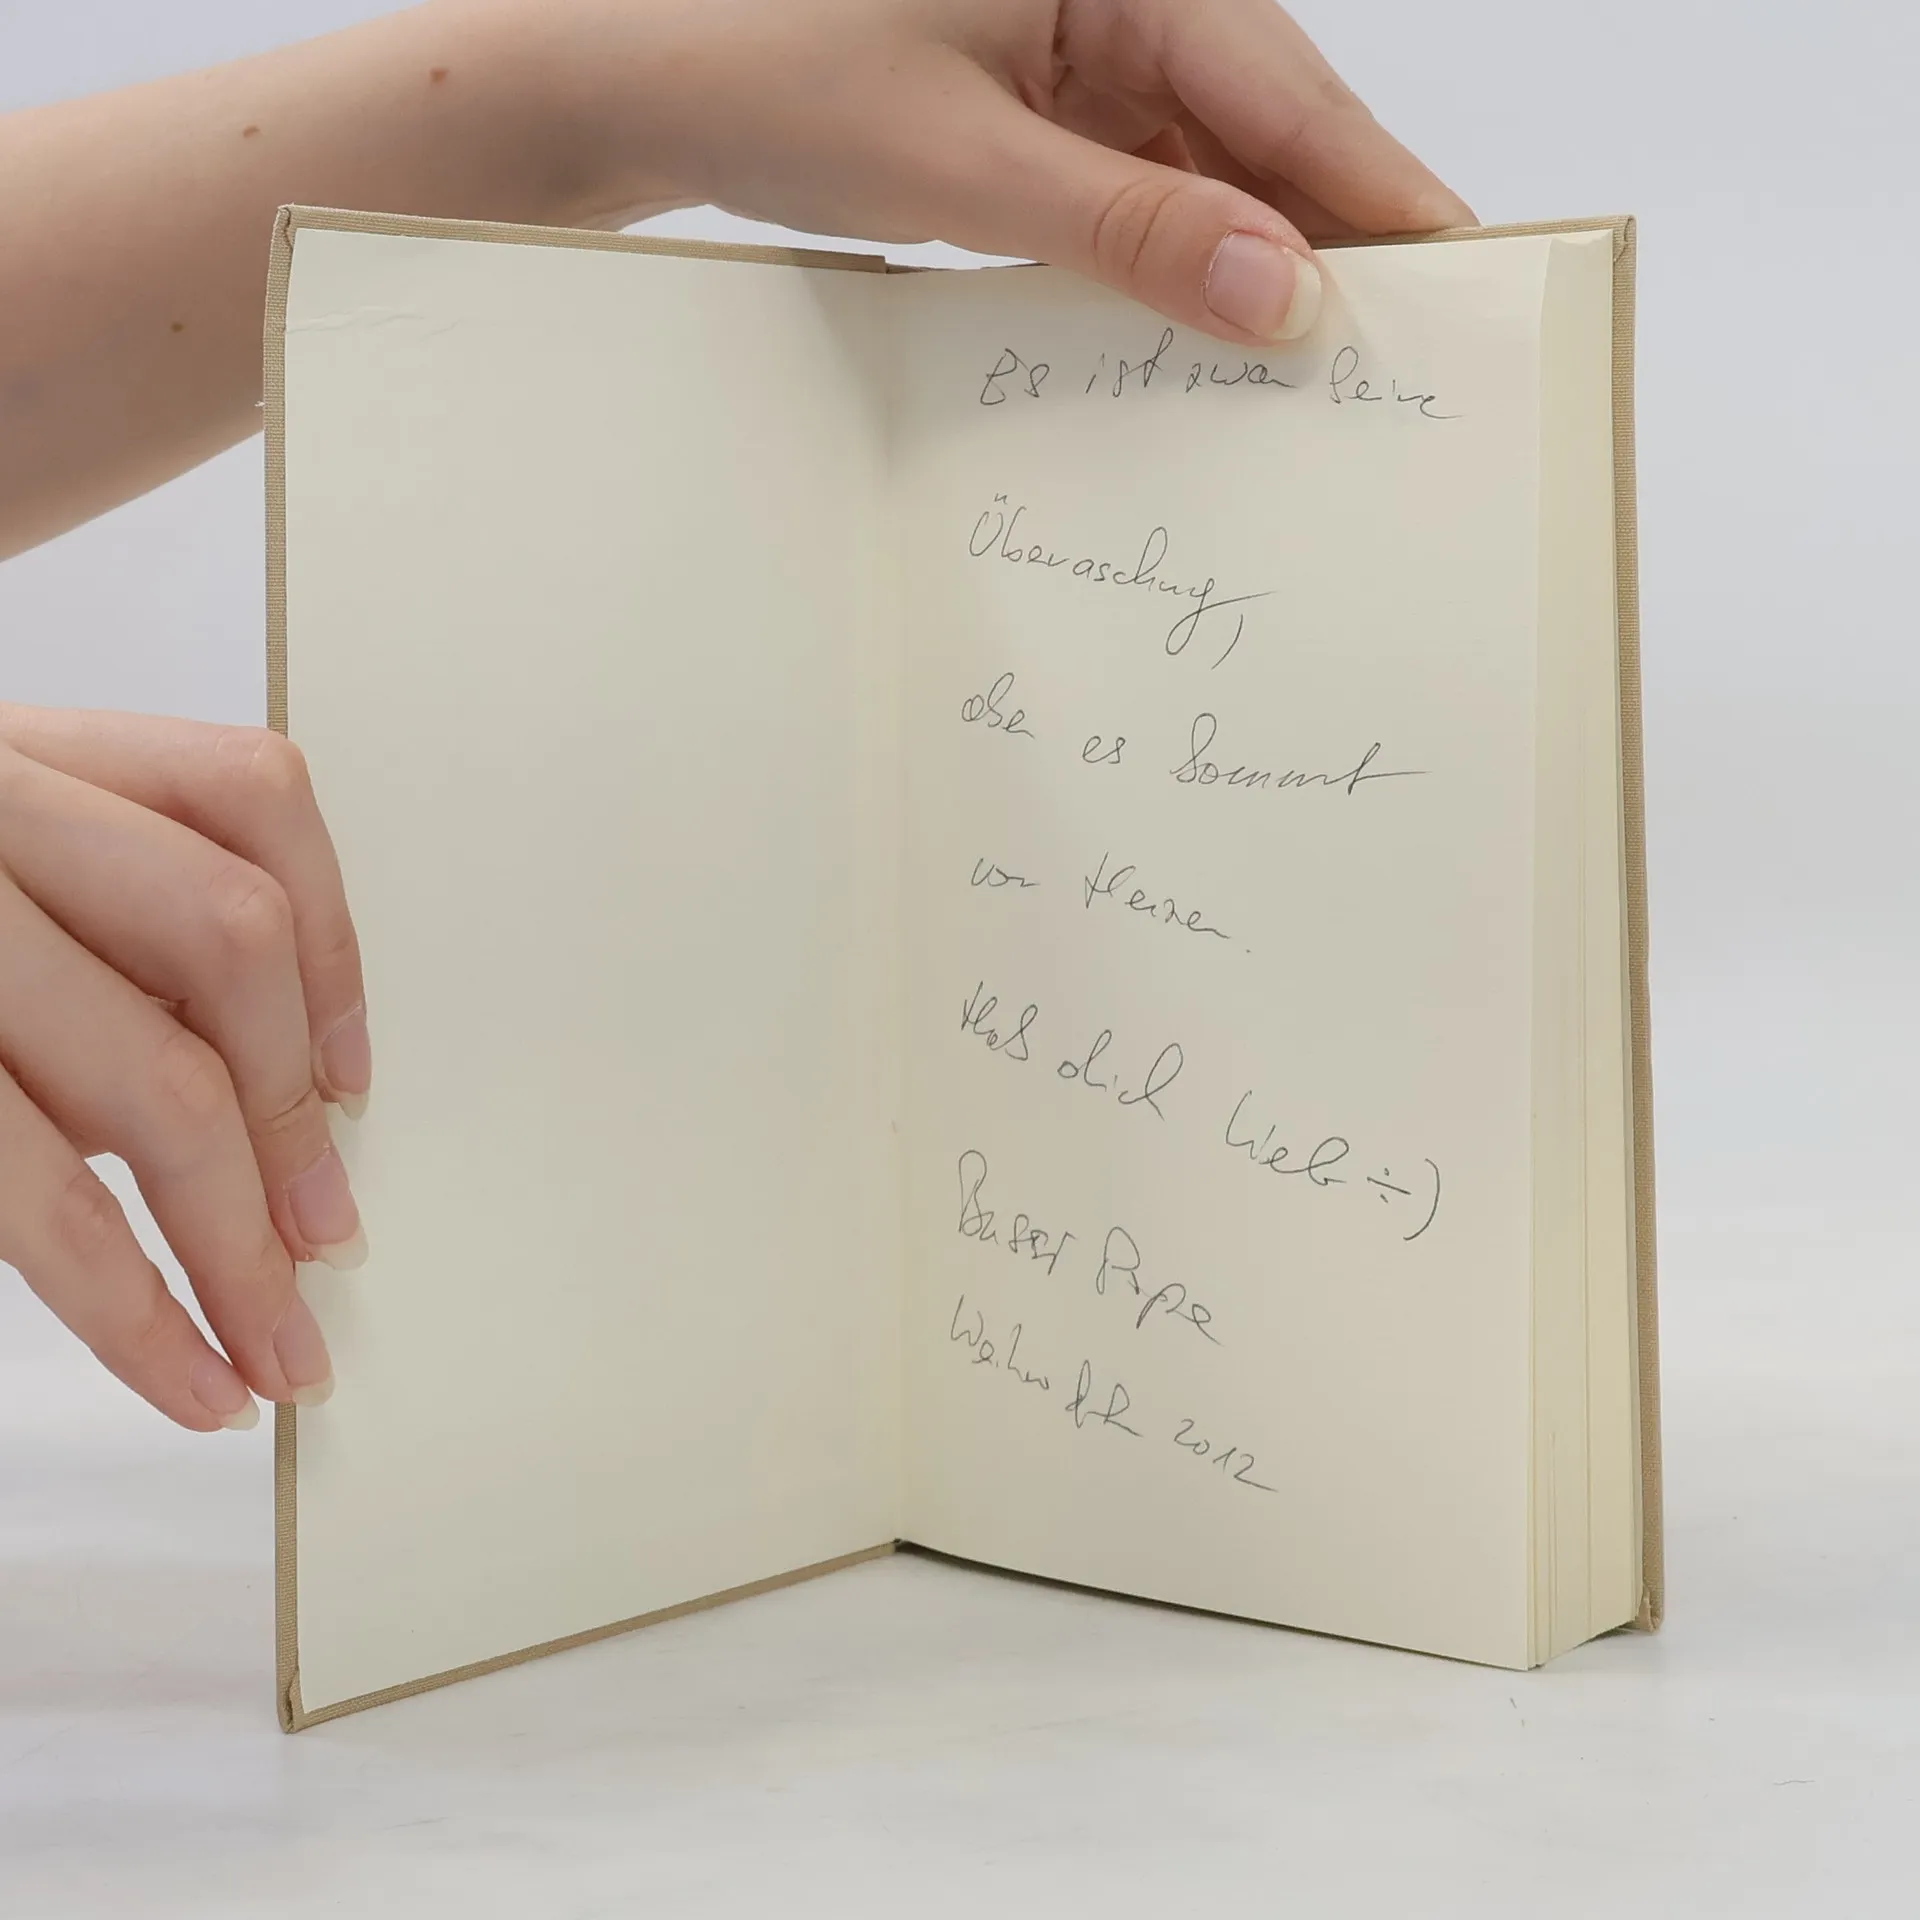 Es ist zwar keine
Überaschung,
aber es kommt
von Herzen.
Hab dich lieb :-)
Bussi Papa
Weihnacht 2012